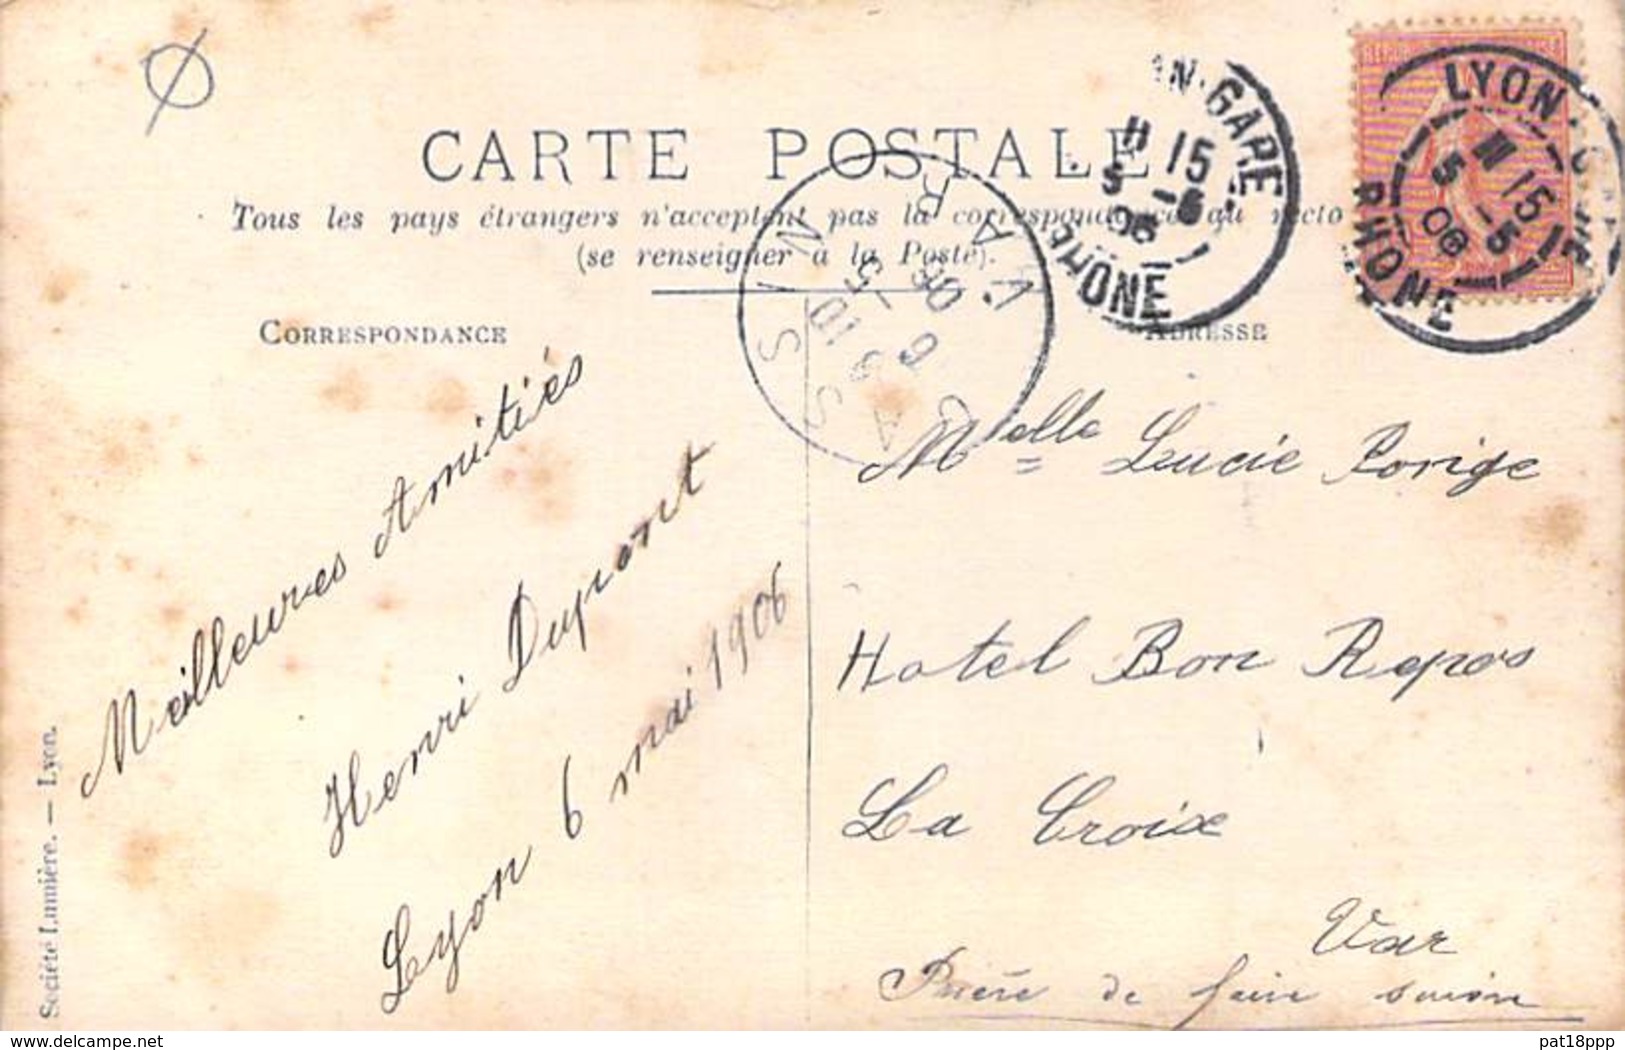 CARTE POSTALE
Tous les pays étrangers n'acceptent pas la correspondance au recto
(se renseigner à la Poste).
CORRESPONDANCE
ADRESSE
LYON-GARE
III 15
5 -5
06
RHONE
N-GARE
15
5 -5
06
RHONE
CASSIS
VAR
6 -5
06
Meilleures Amitiés
Henri Dupont
Lyon 6 mai 1906
Melle Lucie Porige
Hotel Bon Repos
La Croix
Var
Prière de faire suivre
Société Lumière. — Lyon.
delcampe.net
pat18ppp